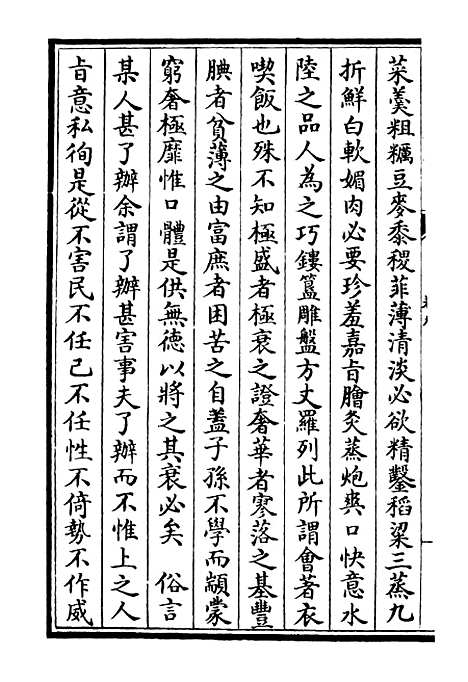 菜羮粗糲豆麥黍稷菲薄清淡必欲精鑿稻粱三蒸九
折鮮白軟媚肉必要珍羞嘉旨膾炙蒸炮爽口快意水
陸之品人為之巧鏤簋雕盤方丈羅列此所謂會著衣
喫飯也殊不知極盛者極衰之證奢華者寥落之基豐
腆者貧薄之由富庶者困苦之自蓋子孫不學而顓蒙
窮奢極靡惟口體是供無德以將之其衰必矣　俗言
某人甚了辦余謂了辦甚害事夫了辦而不惟上之人
旨意私徇是從不害民不任己不任性不倚勢不作威